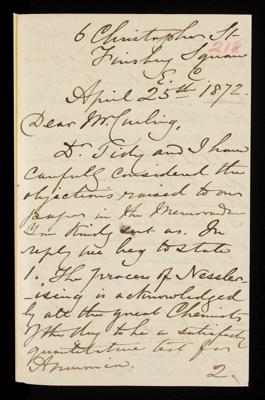 6 Christopher St
218
Finsbury Square
E.C.
April 25th 1872.
Dear Mr. Curling,
Dr. Tidy and I have
carefully considered the
objections raised to our
paper in the Memorandum
kindly sent us. In
reply we beg to state
1. The process of Nessler-
ising is acknowledged
by all the great Chemists
of the day to be a satisfactory
quantitative test for
Ammonia.
2.